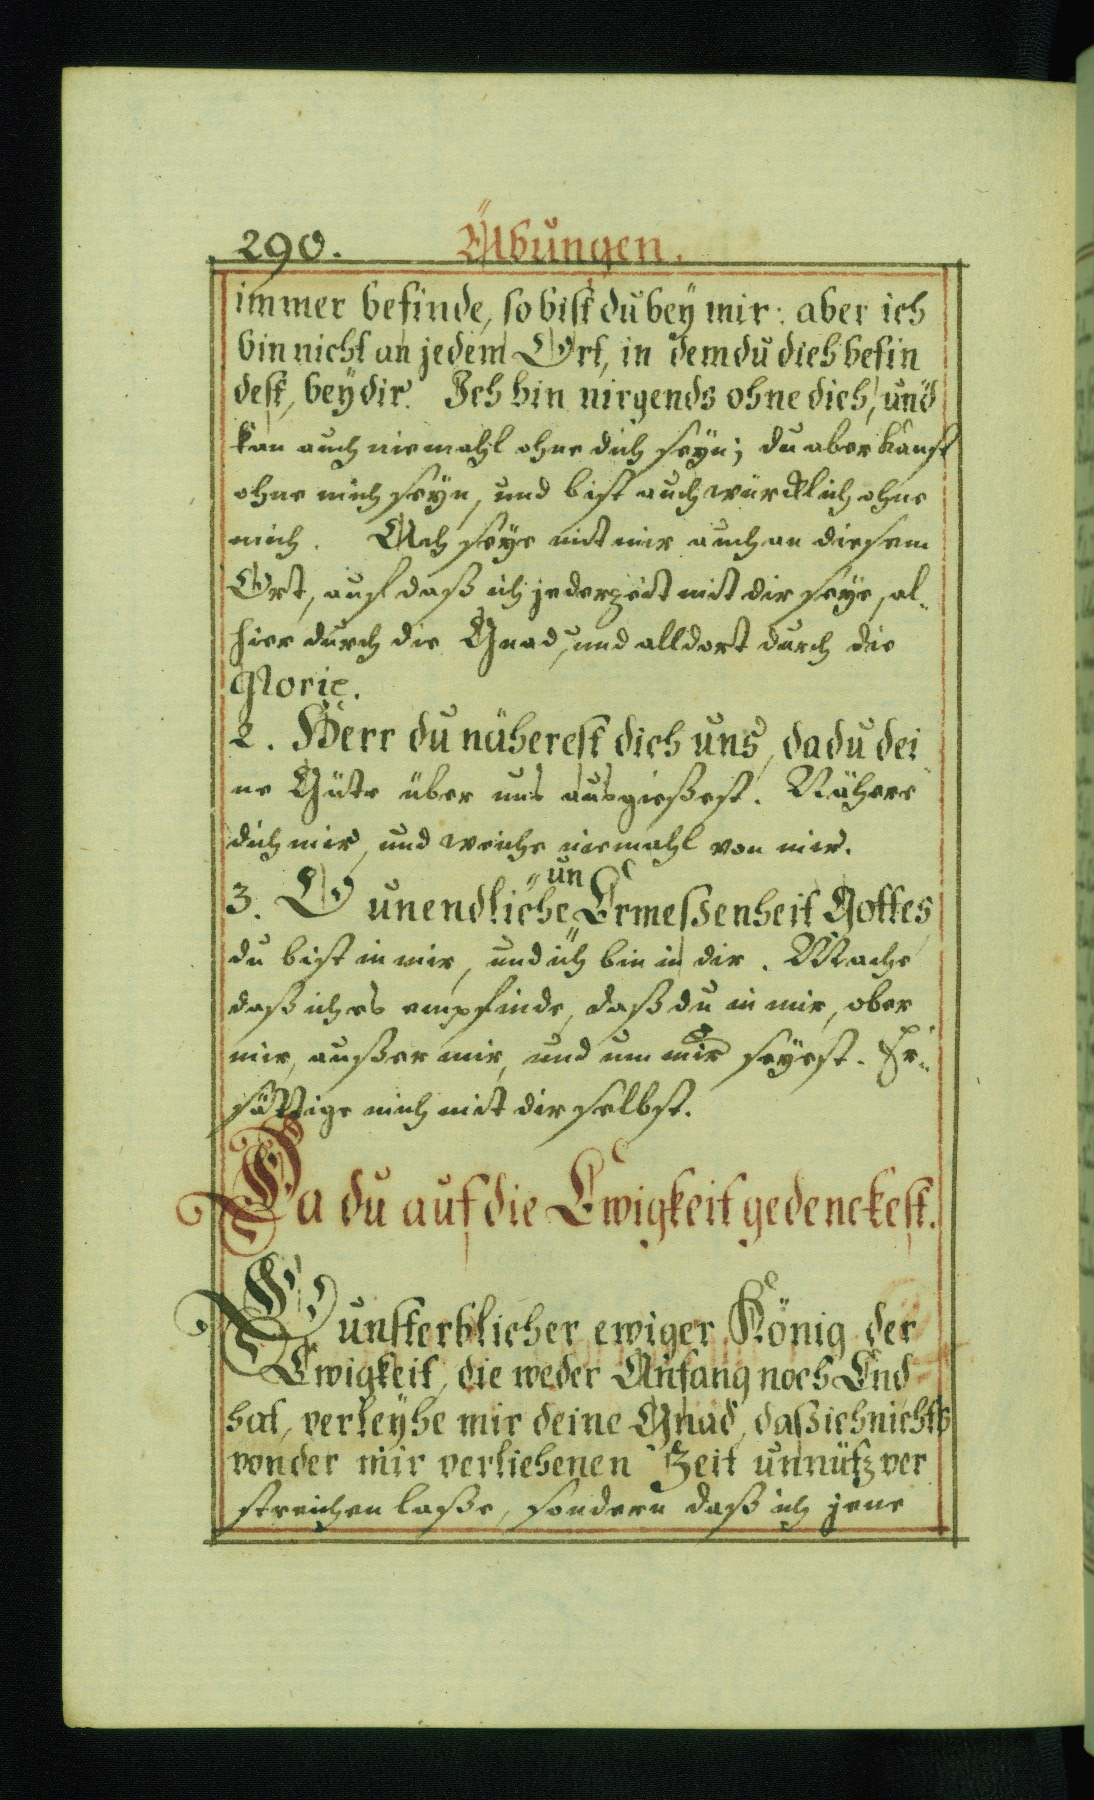 290. Übungen.
immer befinde, so bist du bey mir: aber ich
bin nicht an jedem Ort, in dem du dich befin
dest, bey dir. Ich bin nirgends ohne dich, und
kan auch niemahl ohne dich seyn; du aber kanst
ohne mich seyn, und bist auch würcklich ohne
mich. Ach seye mit mir auch an diesem
Ort, auf daß ich jederzeit mit dir seye, al-
hier durch die Gnad, und alldort durch die
Glorie.
2. Herr du näherest dich uns, da du dei
ne Güte über uns ausgießest. Nähere
dich mir, und weiche niemahl von mir.
3. O unendliche un Ermeßenheit Gottes
du bist in mir, und ich bin in dir. Mache
daß ich es empfinde, daß du in mir, ober
mir, außer mir, und um mir seyest. Er-
sättige mich mit dir selbst.
Da du auf die Ewigkeit gedenckest.
O unsterblicher ewiger König der
Ewigkeit, die weder Anfang noch End
hat, verleyhe mir deine Gnad, daß ich nichts
von der mir verliehenen Zeit unnütz ver
streichen laße, sondern daß ich jene